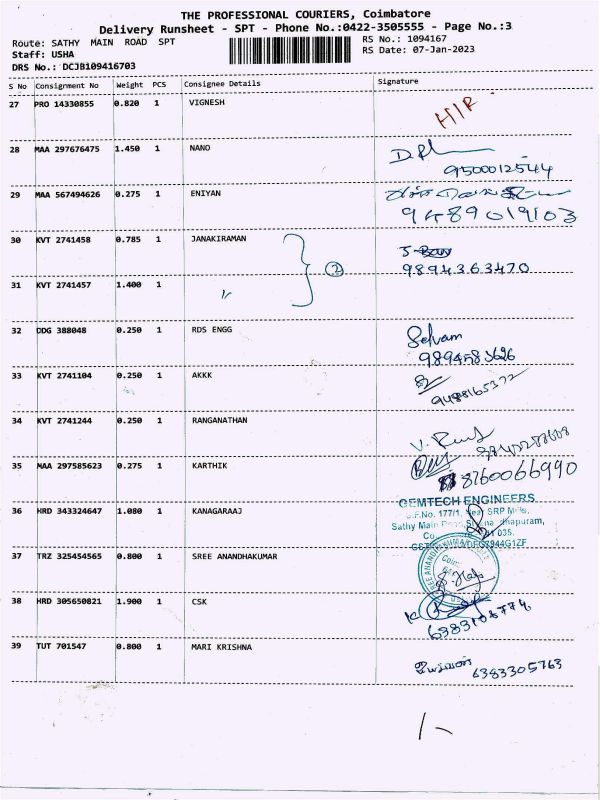 THE PROFESSIONAL COURIERS, Coimbatore
Delivery Runsheet - SPT - Phone No.:0422-3505555 - Page No.:3
Route: SATHY MAIN ROAD SPT
RS No.: 1094167
Staff: USHA
RS Date: 07-Jan-2023
DRS No.: DCJB109416703
S No Consignment No Weight PCS Consignee Details Signature
27 PRO 14330855 0.820 1 VIGNESH
28 MAA 297676475 1.450 1 NANO
9500012544
29 MAA 567494626 0.275 1 ENIYAN
9489019103
30 KVT 2741458 0.785 1 JANAKIRAMAN
2
9894363470
31 KVT 2741457 1.400 1 "
32 DDG 388048 0.250 1 RDS ENGG Selvam
9894583626
33 KVT 2741104 0.250 1 AKKK
9488165372
34 KVT 2741244 0.250 1 RANGANATHAN
35 MAA 297585623 0.275 1 KARTHIK 8760066990
GEMTECH ENGINEERS
36 HRD 343324647 1.080 1 KANAGARAAJ S.F.No. 177/1, Near SRP Mills,
Sathy Main
37 TRZ 325454565 0.800 1 SREE ANANDHAKUMAR
38 HRD 305650821 1.900 1 CSK
39 TUT 701547 0.800 1 MARI KRISHNA
6383305763